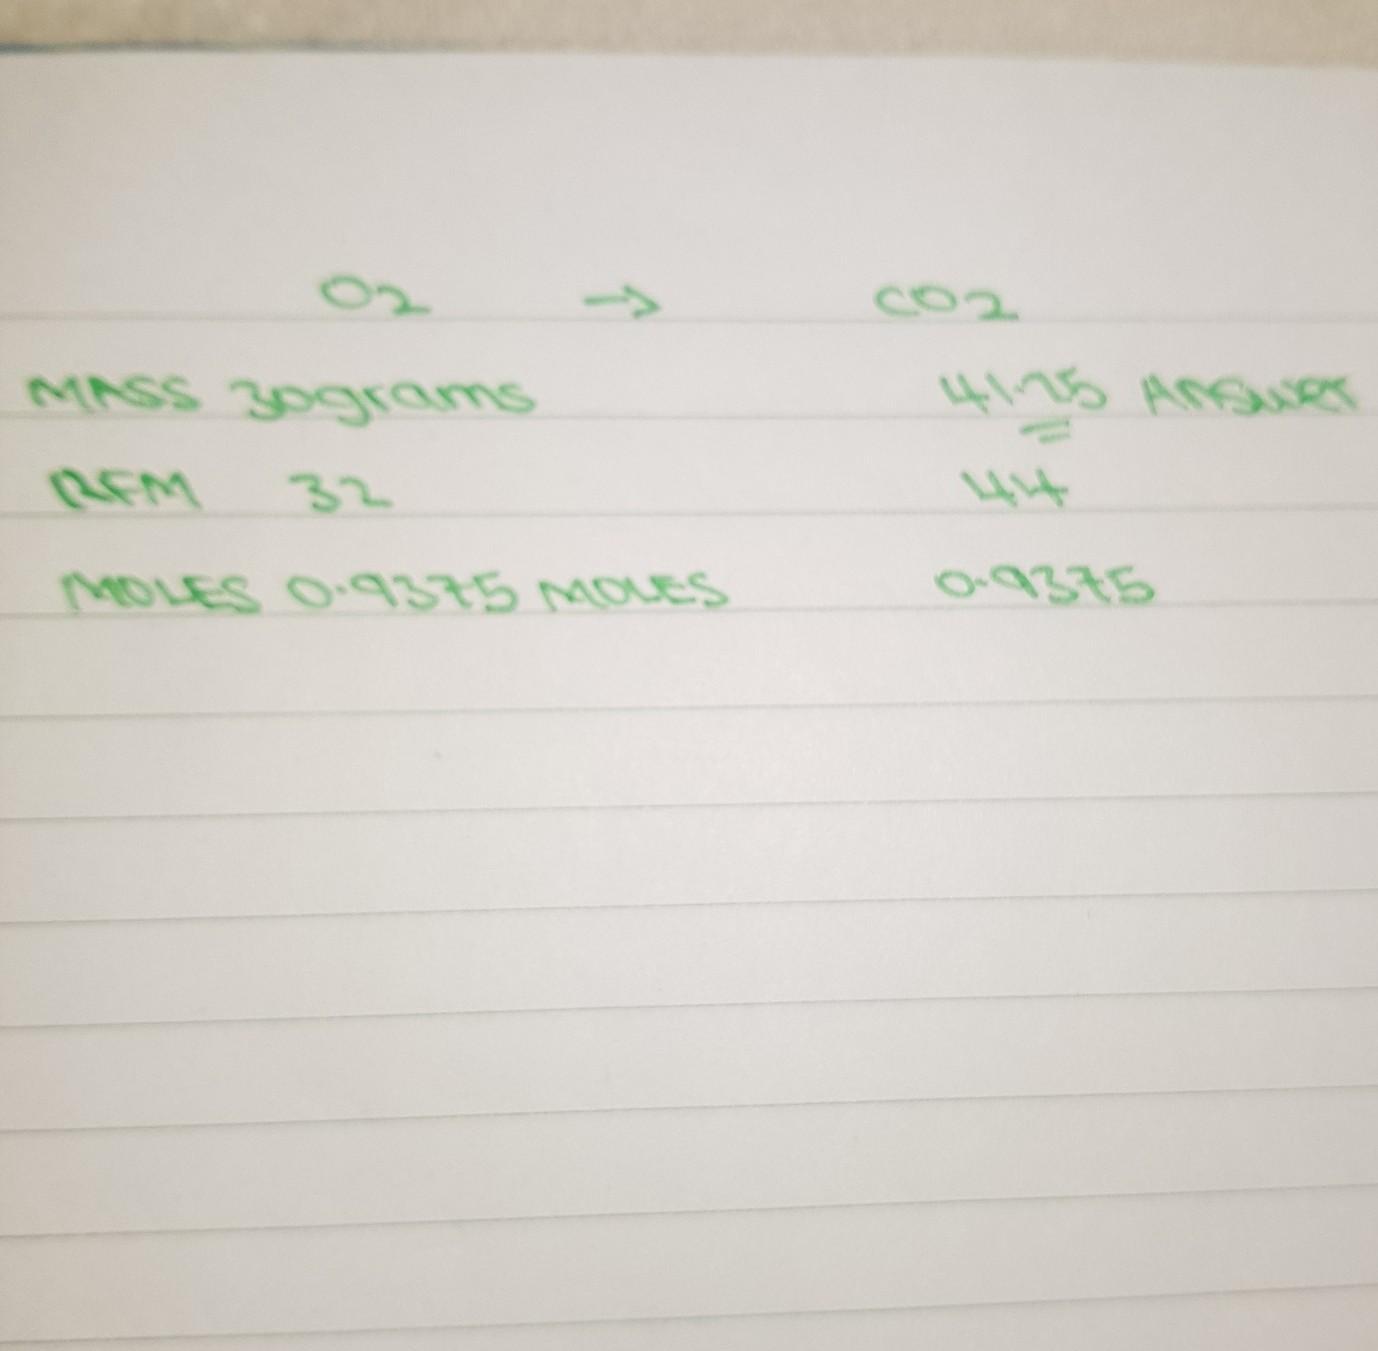 O2 → CO2
MASS 30grams 41.25 Answer
RFM 32 44
MOLES 0.9375 MOLES 0.9375